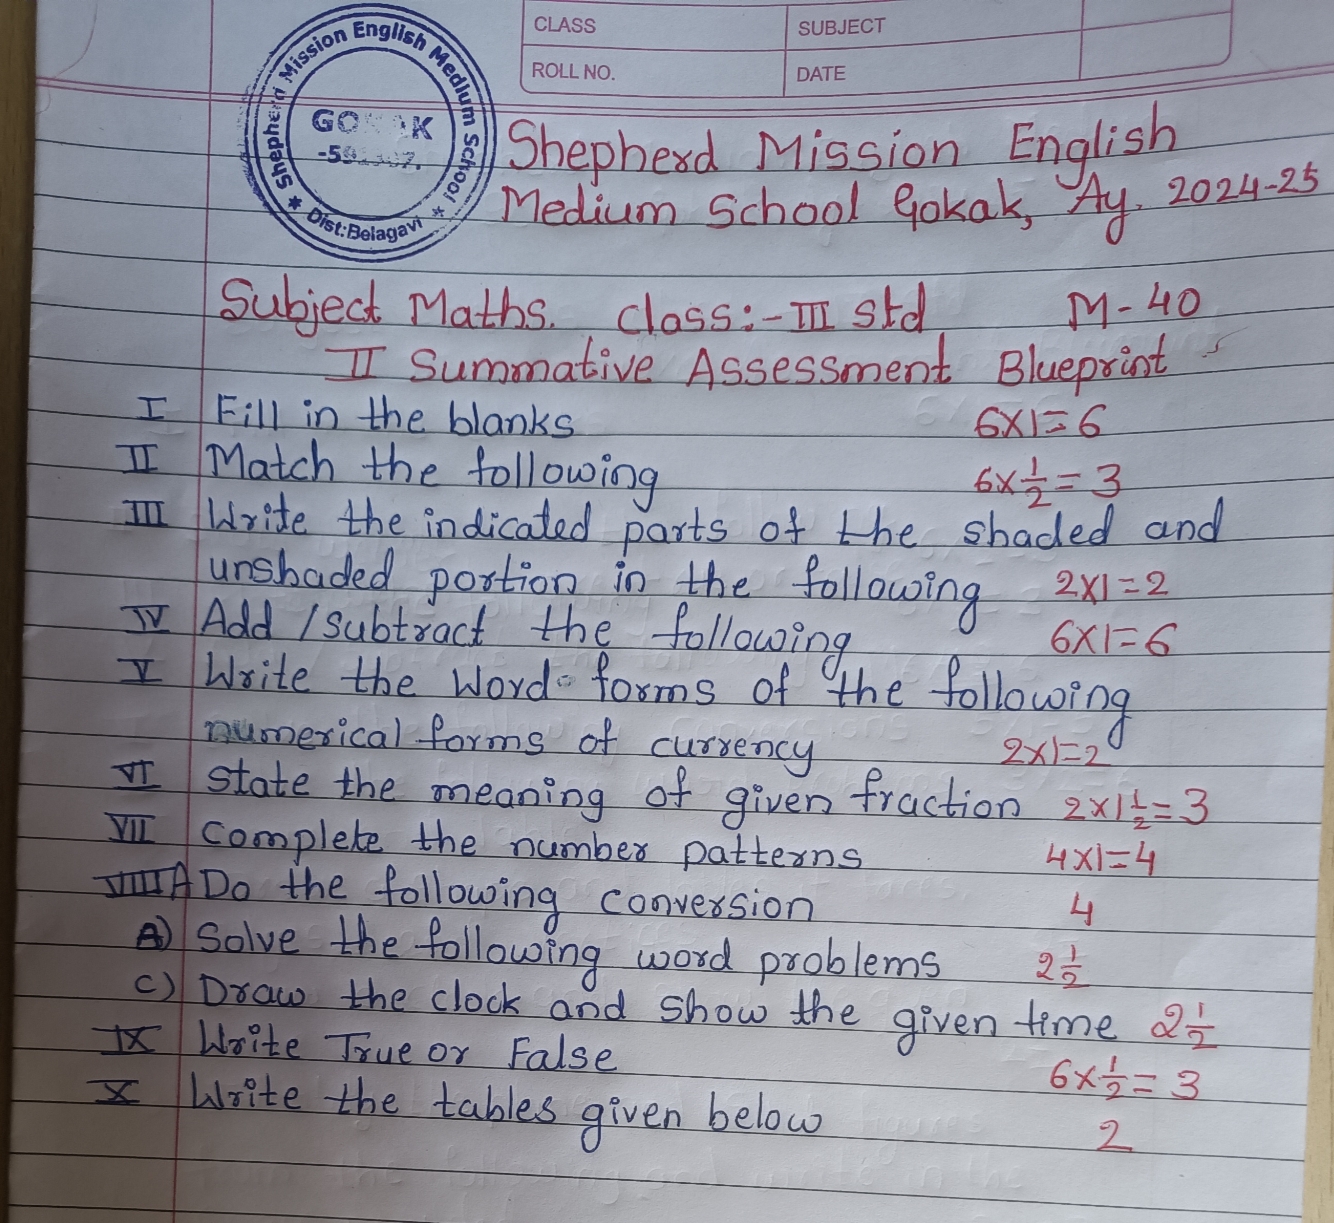 CLASS SUBJECT
ROLL NO. DATE
Shepherd Mission English Medium School
GOKAK
* Dist:Belagavi *
Shepherd Mission English
Medium School Gokak, Ay. 2024-25
Subject Maths. Class:- III std M-40
II Summative Assessment Blueprint
I Fill in the blanks 6x1=6
II Match the following 6x1/2=3
III Write the indicated parts of the shaded and
unshaded portion in the following 2x1=2
IV Add / Subtract the following 6x1=6
V Write the Word forms of the following
numerical forms of currency 2x1=2
VI State the meaning of given fraction 2x1 1/2=3
VII Complete the number patterns 4x1=4
VIII A Do the following conversion 4
A) Solve the following word problems 2 1/2
C) Draw the clock and show the given time 2 1/2
IX Write True or False 6x1/2=3
X Write the tables given below 2